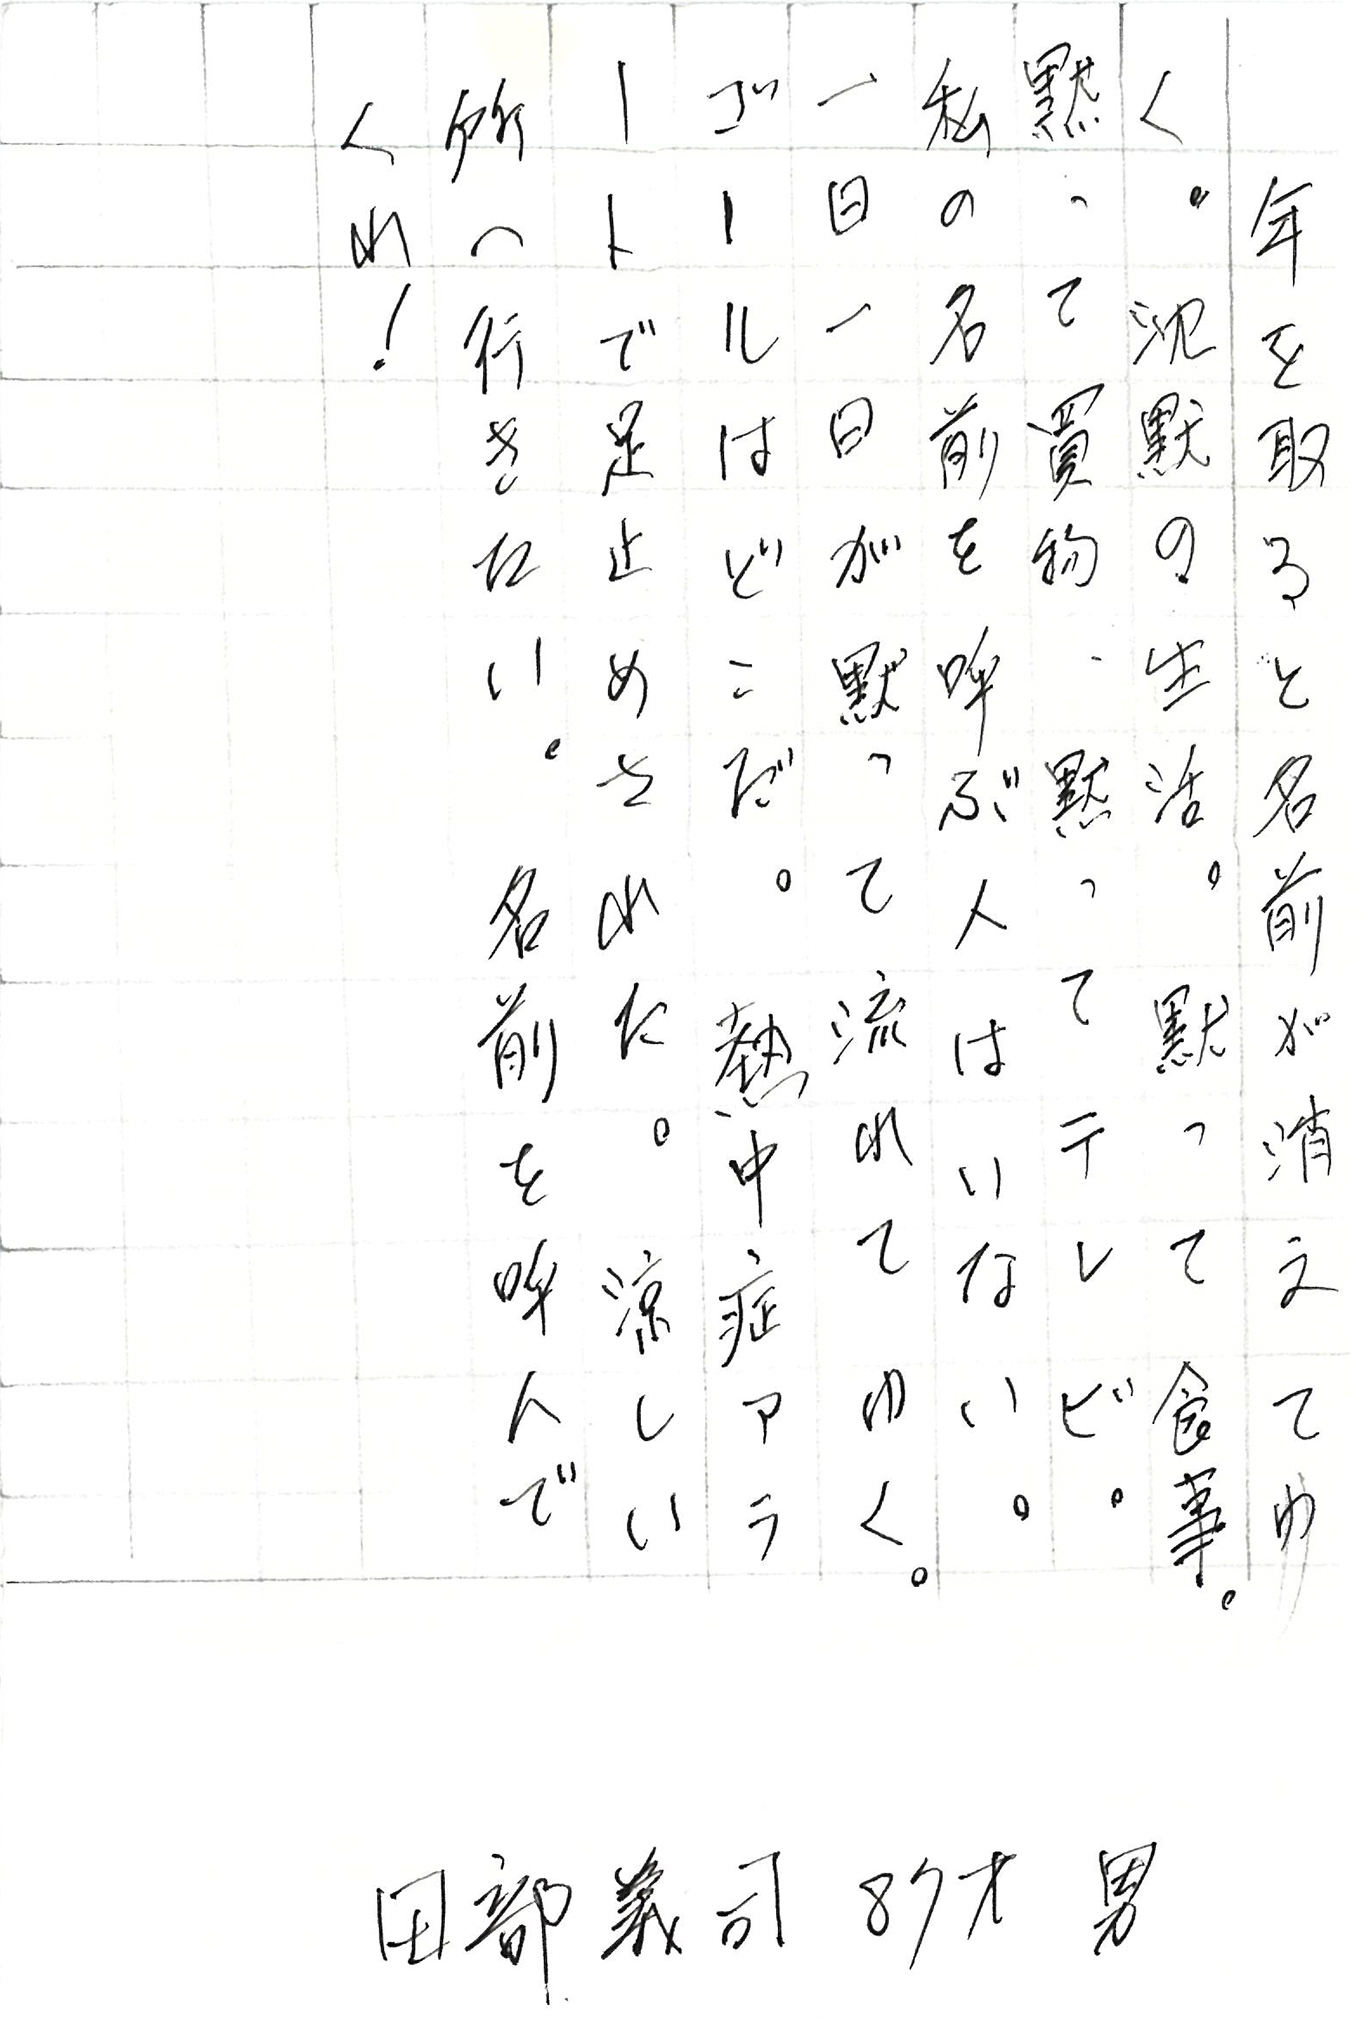 年を取ると名前が消えてゆ
く。沈黙の生活。黙って食事。
黙って買物、黙ってテレビ。
私の名前を呼ぶ人はいない。
一日一日が黙って流れてゆく。
ゴールはどこだ。熱中症アラ
ートで足止めされた。涼しい
所へ行きたい。名前を呼んで
くれ!
田部義司 87才 男